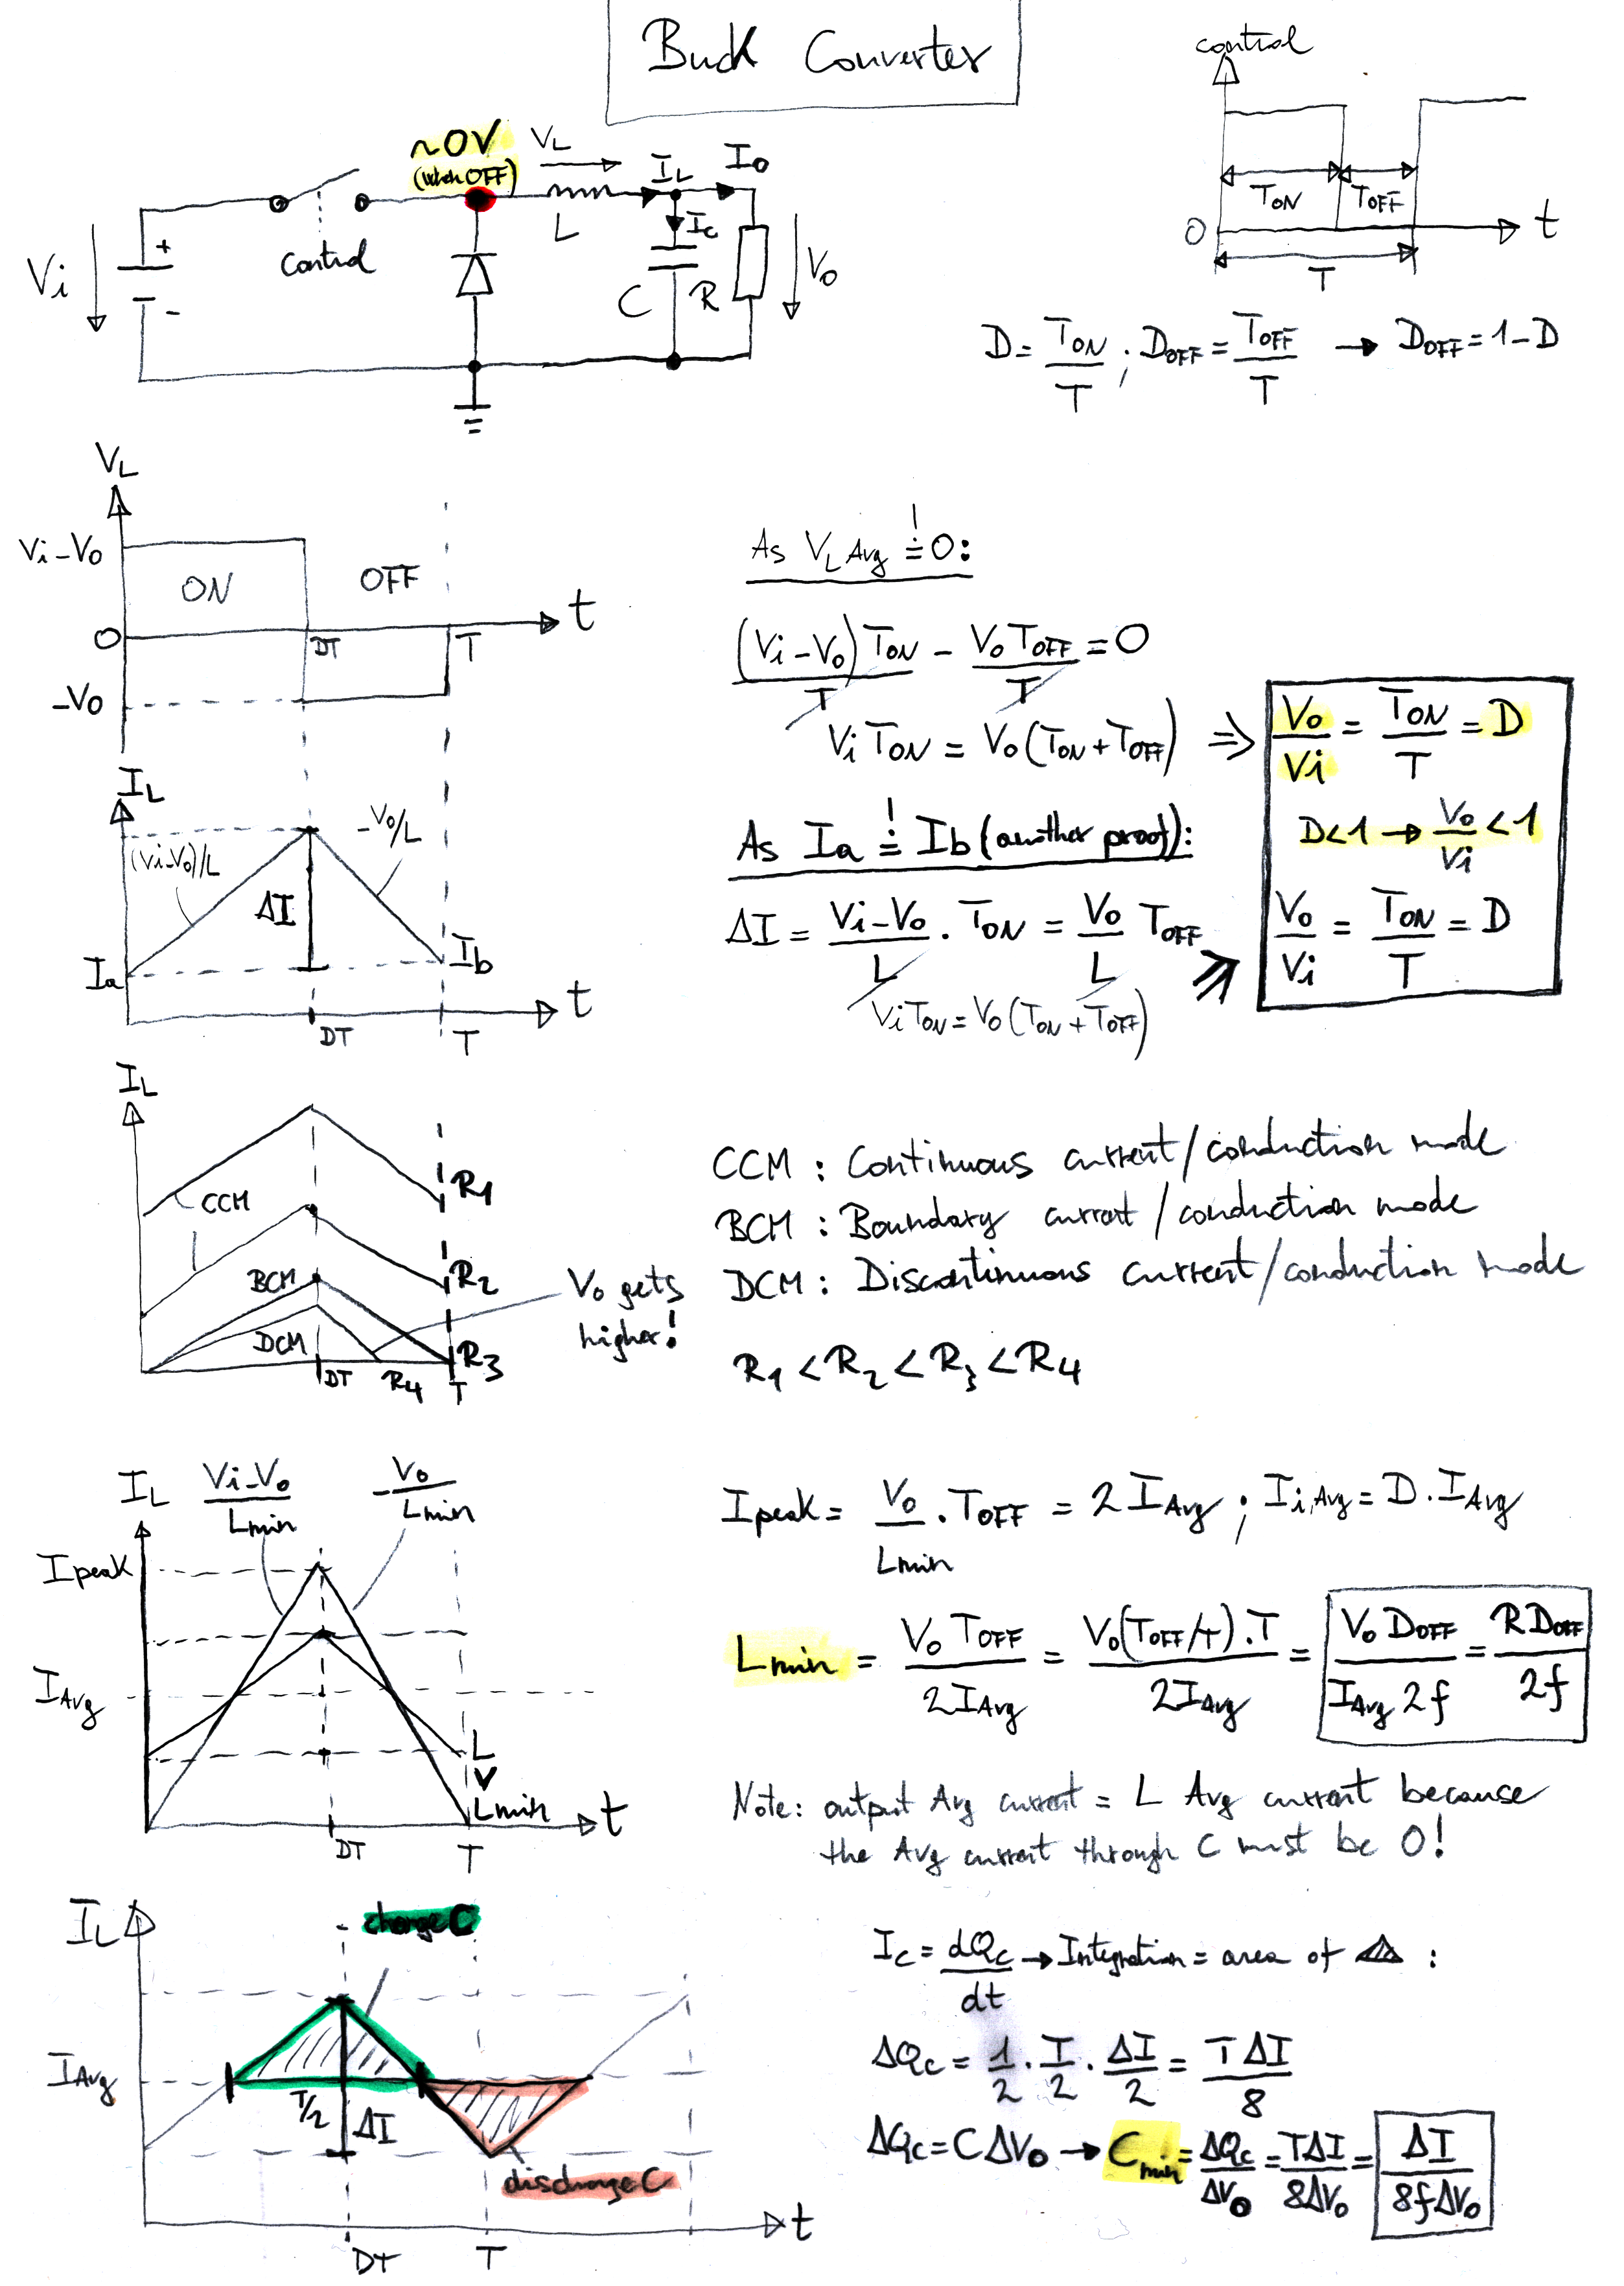 Buck Converter
control
TON TOFF
0 t
T
~0V
(when OFF)
VL
IL
IO
Vi
+
-
control
L
IC
C
R
VO
D = TON/T ; DOFF = TOFF/T → DOFF = 1-D
VL
Vi-VO
ON
OFF
0
DT
T
t
-VO
As VL Avg =! 0:
(Vi-VO)TON/T - VO TOFF/T = 0
Vi TON = VO(TON+TOFF) ⇒
VO/Vi = TON/T = D
D<1 → VO/Vi < 1
VO/Vi = TON/T = D
IL
(Vi-VO)/L
-VO/L
ΔI
Ia
Ib
DT
T
t
As Ia =! Ib (another proof):
ΔI = (Vi-VO)/L . TON = VO/L TOFF
Vi TON = VO(TON+TOFF) ⇒
IL
CCM
R1
R2
BCM
DCM
R3
DT R4 T
VO gets
higher!
CCM : Continuous current/conduction mode
BCM : Boundary current/conduction mode
DCM : Discontinuous current/conduction mode
R1 < R2 < R3 < R4
IL
(Vi-VO)/Lmin
-VO/Lmin
Ipeak
IAvg
L
V
Lmin
t
DT
T
Ipeak = VO/Lmin . TOFF = 2 IAvg ; Ii,Avg = D . IAvg
Lmin = VO TOFF/2IAvg = VO(TOFF/T).T/2IAvg = VO DOFF/IAvg 2f = R DOFF/2f
Note: output Avg current = L Avg current because
the Avg current through C must be 0!
IL
charge C
IAvg
T/2
ΔI
discharge C
t
DT
T
IC = dQC/dt → Integration = area of △ :
ΔQC = 1/2 . T/2 . ΔI/2 = TΔI/8
ΔQC = CΔVO → Cmin = ΔQC/ΔVO = TΔI/8ΔVO = ΔI/8fΔVO